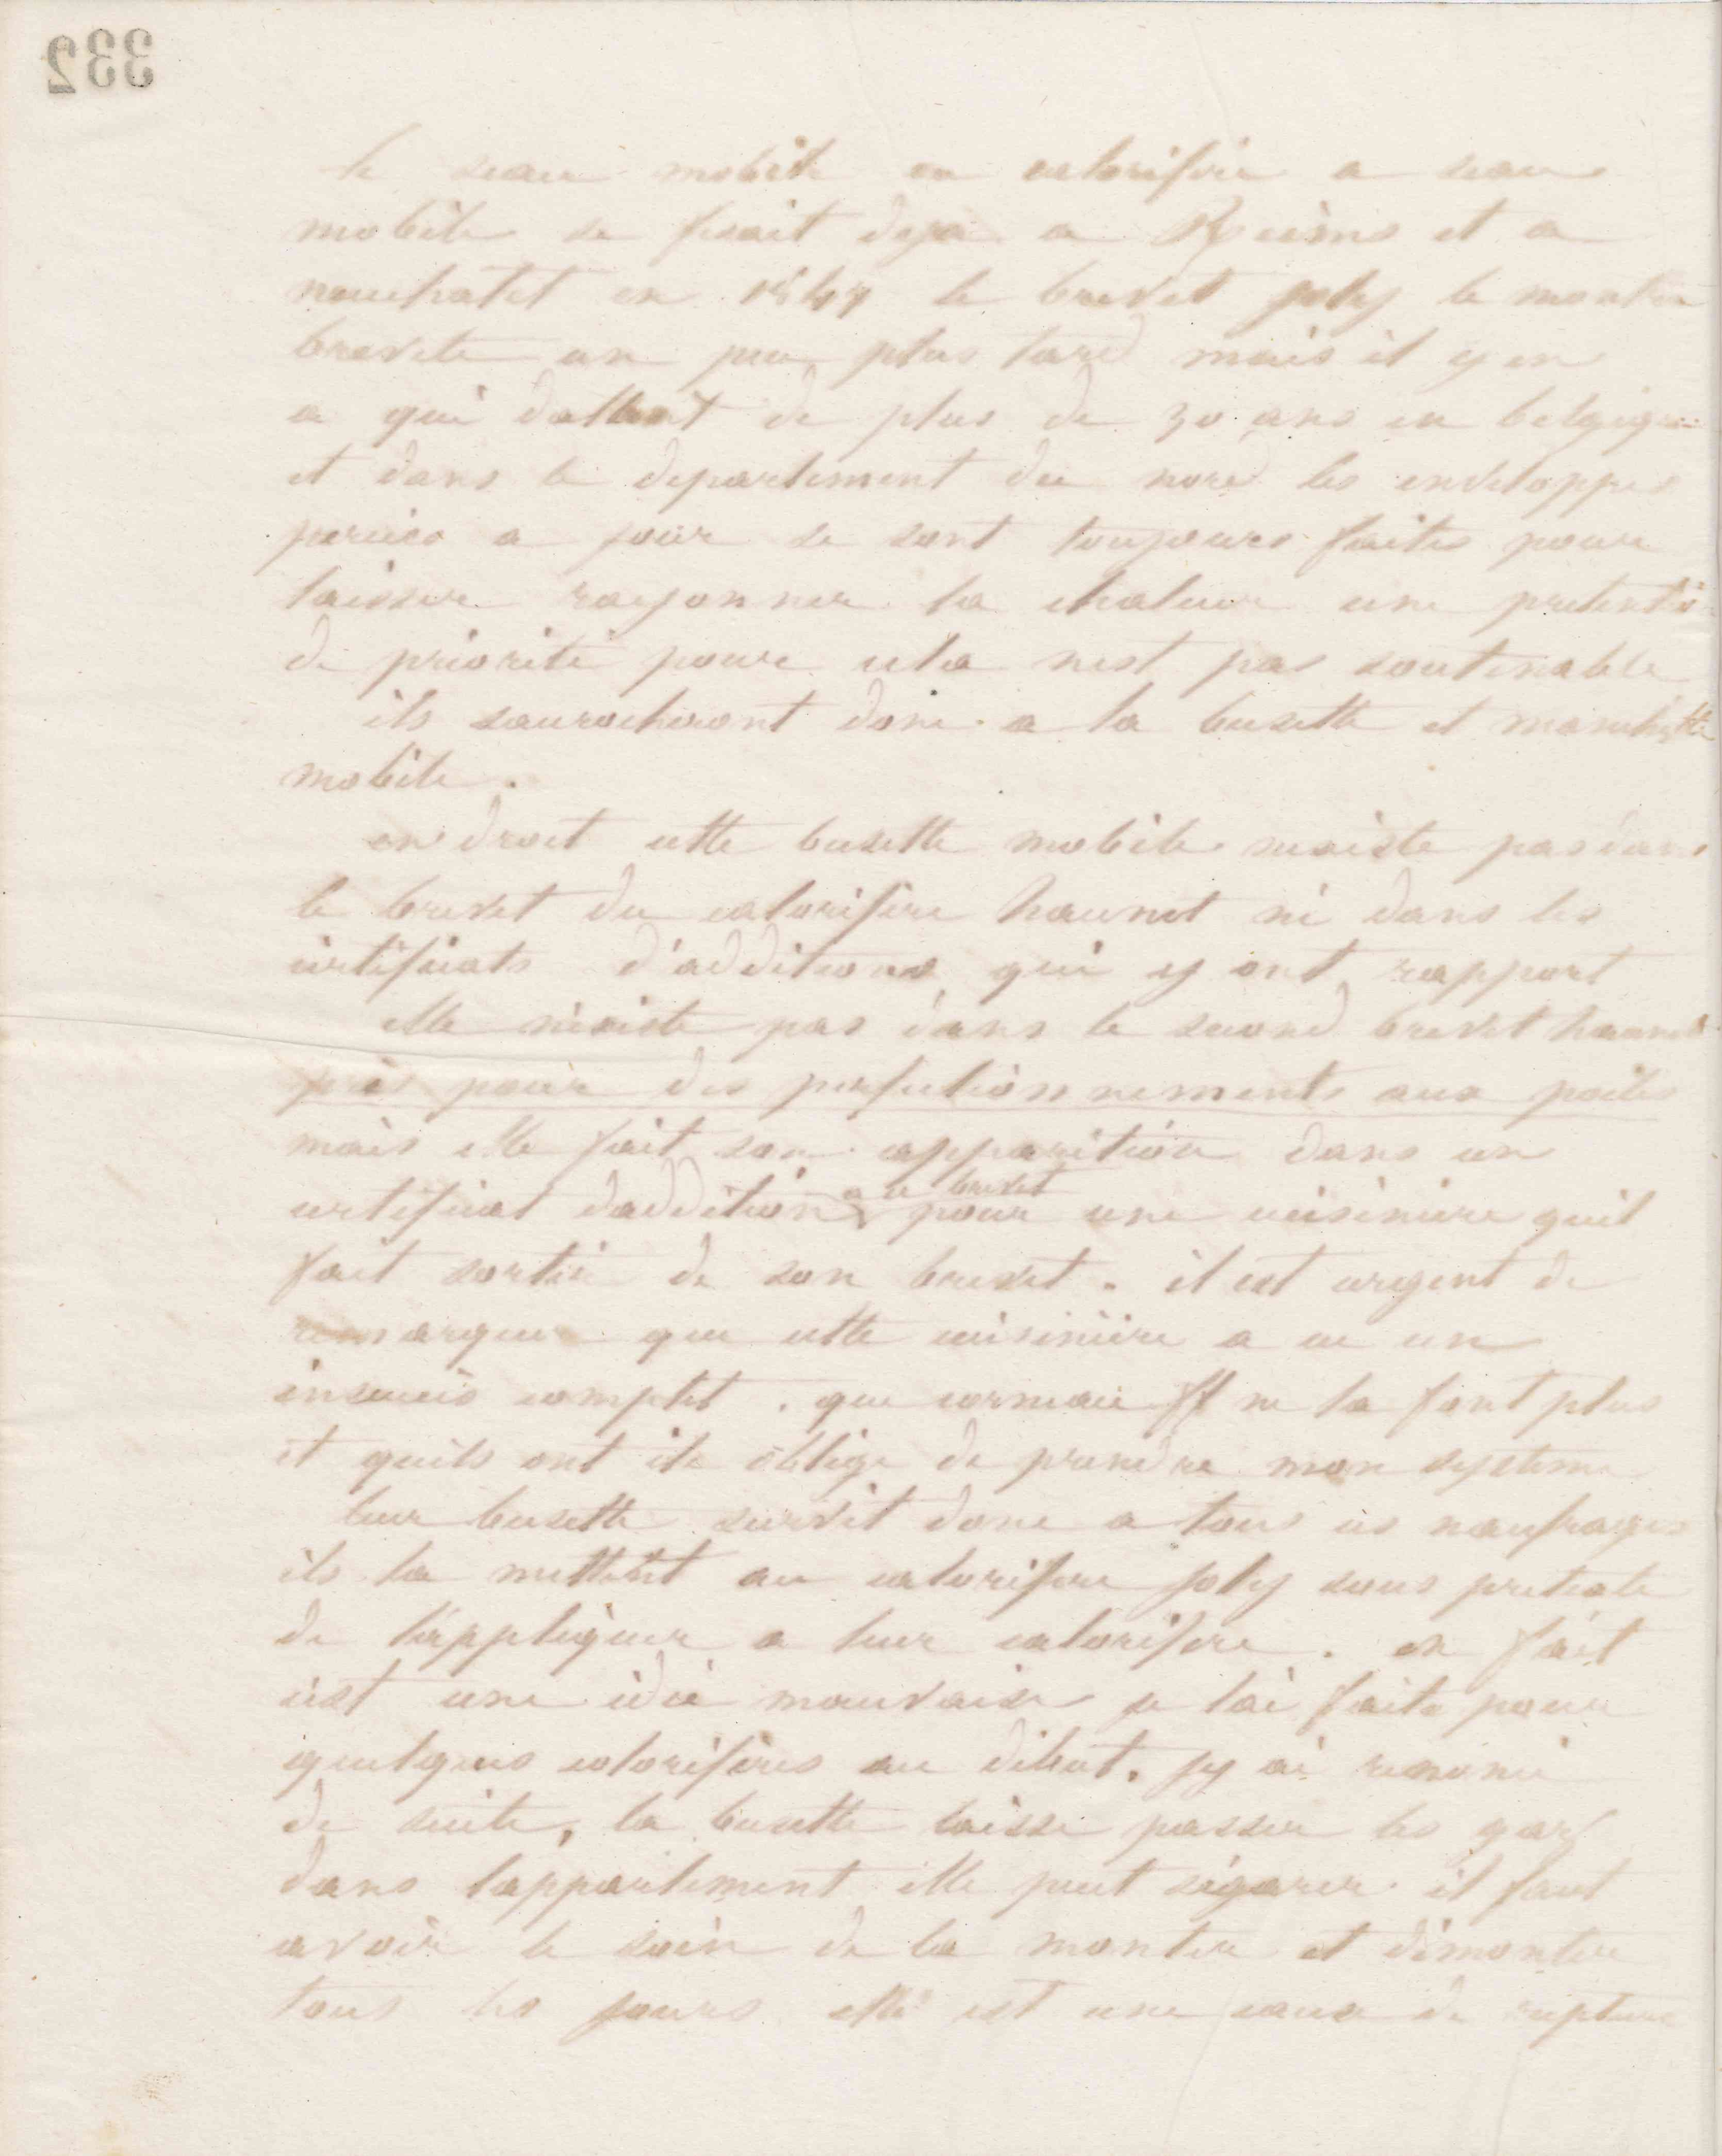 332
le seau mobile ou calorifère a seau
mobile se fesait deja a Rheims et a
neuchatel en 1849 le brevet joly le montre
brevete un peu plus tard mais il y en
a qui dattent de plus de 30 ans en belgique
et dans le departement du nord les enveloppes
percées a jour se sont toujours faites pour
laisser rayonner la chaleur une pretention
de priorité pour cela nest pas soutenable
ils saurocheront donc a la busette et manchette
mobile.
en droit cette busette mobile nexiste pas dans
le brevet du calorifère haurez ni dans les
certificats d'additions qui y ont rapport
elle n'existe pas dans le second brevet
pris pour des perfectionnements aux poeles
mais elle fait son apparition dans un
certificat daddition au brevet pour une cuisinière quil
fait sortir de son brevet. il est urgent de
remarquer que cette cuisinière a eu un
insuccès complet. que ne la font plus
et quils ont été obligé de prendre mon systeme
leur busette survit donc a tous ces naufrages
ils la mettent au calorifère joly sous pretexte
de l'appliquer a leur calorifère. en fait
cest une idée mauvaise je lai faite pour
quelques calorifères au début. jy ai renoncé
de suite, la busette laisse passer les gaz
dans lappartement elle peut ségarer il faut
avoir le soin de la monter et démonter
tous les jours elle est une cause de rupture